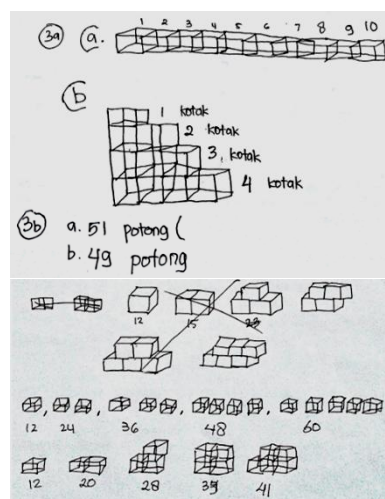 3a a. 1 2 3 4 5 6 7 8 9 10
b
1 kotak
2 kotak
3, kotak
4 kotak
3b a. 51 potong (
b. 49 potong
12 15 28
12, 24 36 48 60
12 20 28 39 41